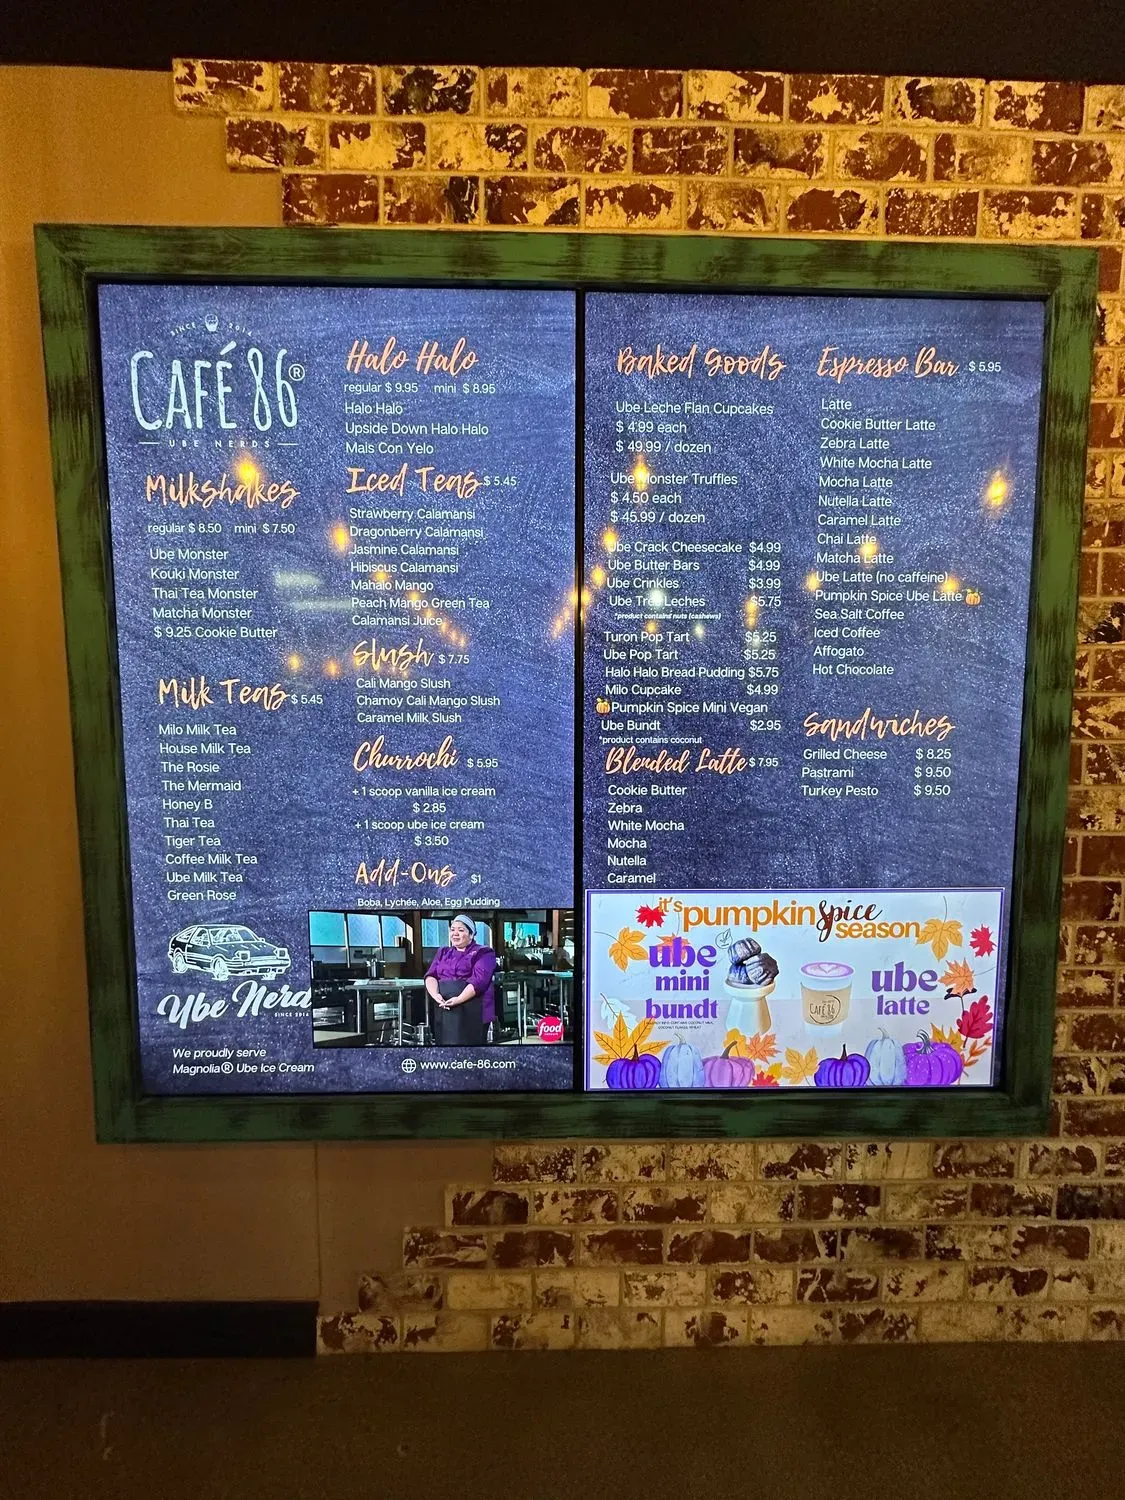 SINCE 2014
CAFÉ 86®
UBE NERDS
Milkshakes
regular $ 8.50 mini $ 7.50
Ube Monster
Kouki Monster
Thai Tea Monster
Matcha Monster
$ 9.25 Cookie Butter
Milk Teas $ 5.45
Milo Milk Tea
House Milk Tea
The Rosie
The Mermaid
Honey B
Thai Tea
Tiger Tea
Coffee Milk Tea
Ube Milk Tea
Green Rose
Ube Nerd
SINCE 2014
We proudly serve
Magnolia® Ube Ice Cream
Halo Halo
regular $ 9.95 mini $ 8.95
Halo Halo
Upside Down Halo Halo
Mais Con Yelo
Iced Teas $ 5.45
Strawberry Calamansi
Dragonberry Calamansi
Jasmine Calamansi
Hibiscus Calamansi
Mahalo Mango
Peach Mango Green Tea
Calamansi Juice
Slush $ 7.75
Cali Mango Slush
Chamoy Cali Mango Slush
Caramel Milk Slush
Churrochi $ 5.95
+ 1 scoop vanilla ice cream
$ 2.85
+ 1 scoop ube ice cream
$ 3.50
Add-Ons $1
Boba, Lychée, Aloe, Egg Pudding
food
www.cafe-86.com
Baked Goods
Ube Leche Flan Cupcakes
$ 4.99 each
$ 49.99 / dozen
Ube Monster Truffles
$ 4.50 each
$ 45.99 / dozen
Ube Crack Cheesecake $4.99
Ube Butter Bars $4.99
Ube Crinkles $3.99
Ube Tres Leches $5.75
*product contains nuts (cashews)
Turon Pop Tart $5.25
Ube Pop Tart $5.25
Halo Halo Bread Pudding $5.75
Milo Cupcake $4.99
🎃Pumpkin Spice Mini Vegan
Ube Bundt $2.95
*product contains coconut
Blended Latte $ 7.95
Cookie Butter
Zebra
White Mocha
Mocha
Nutella
Caramel
Espresso Bar $ 5.95
Latte
Cookie Butter Latte
Zebra Latte
White Mocha Latte
Mocha Latte
Nutella Latte
Caramel Latte
Chai Latte
Matcha Latte
Ube Latte (no caffeine)
Pumpkin Spice Ube Latte 🎃
Sea Salt Coffee
Iced Coffee
Affogato
Hot Chocolate
Sandwiches
Grilled Cheese $ 8.25
Pastrami $ 9.50
Turkey Pesto $ 9.50
it's pumpkin Spice season
ube
mini
bundt
CAFÉ 86
ube
latte